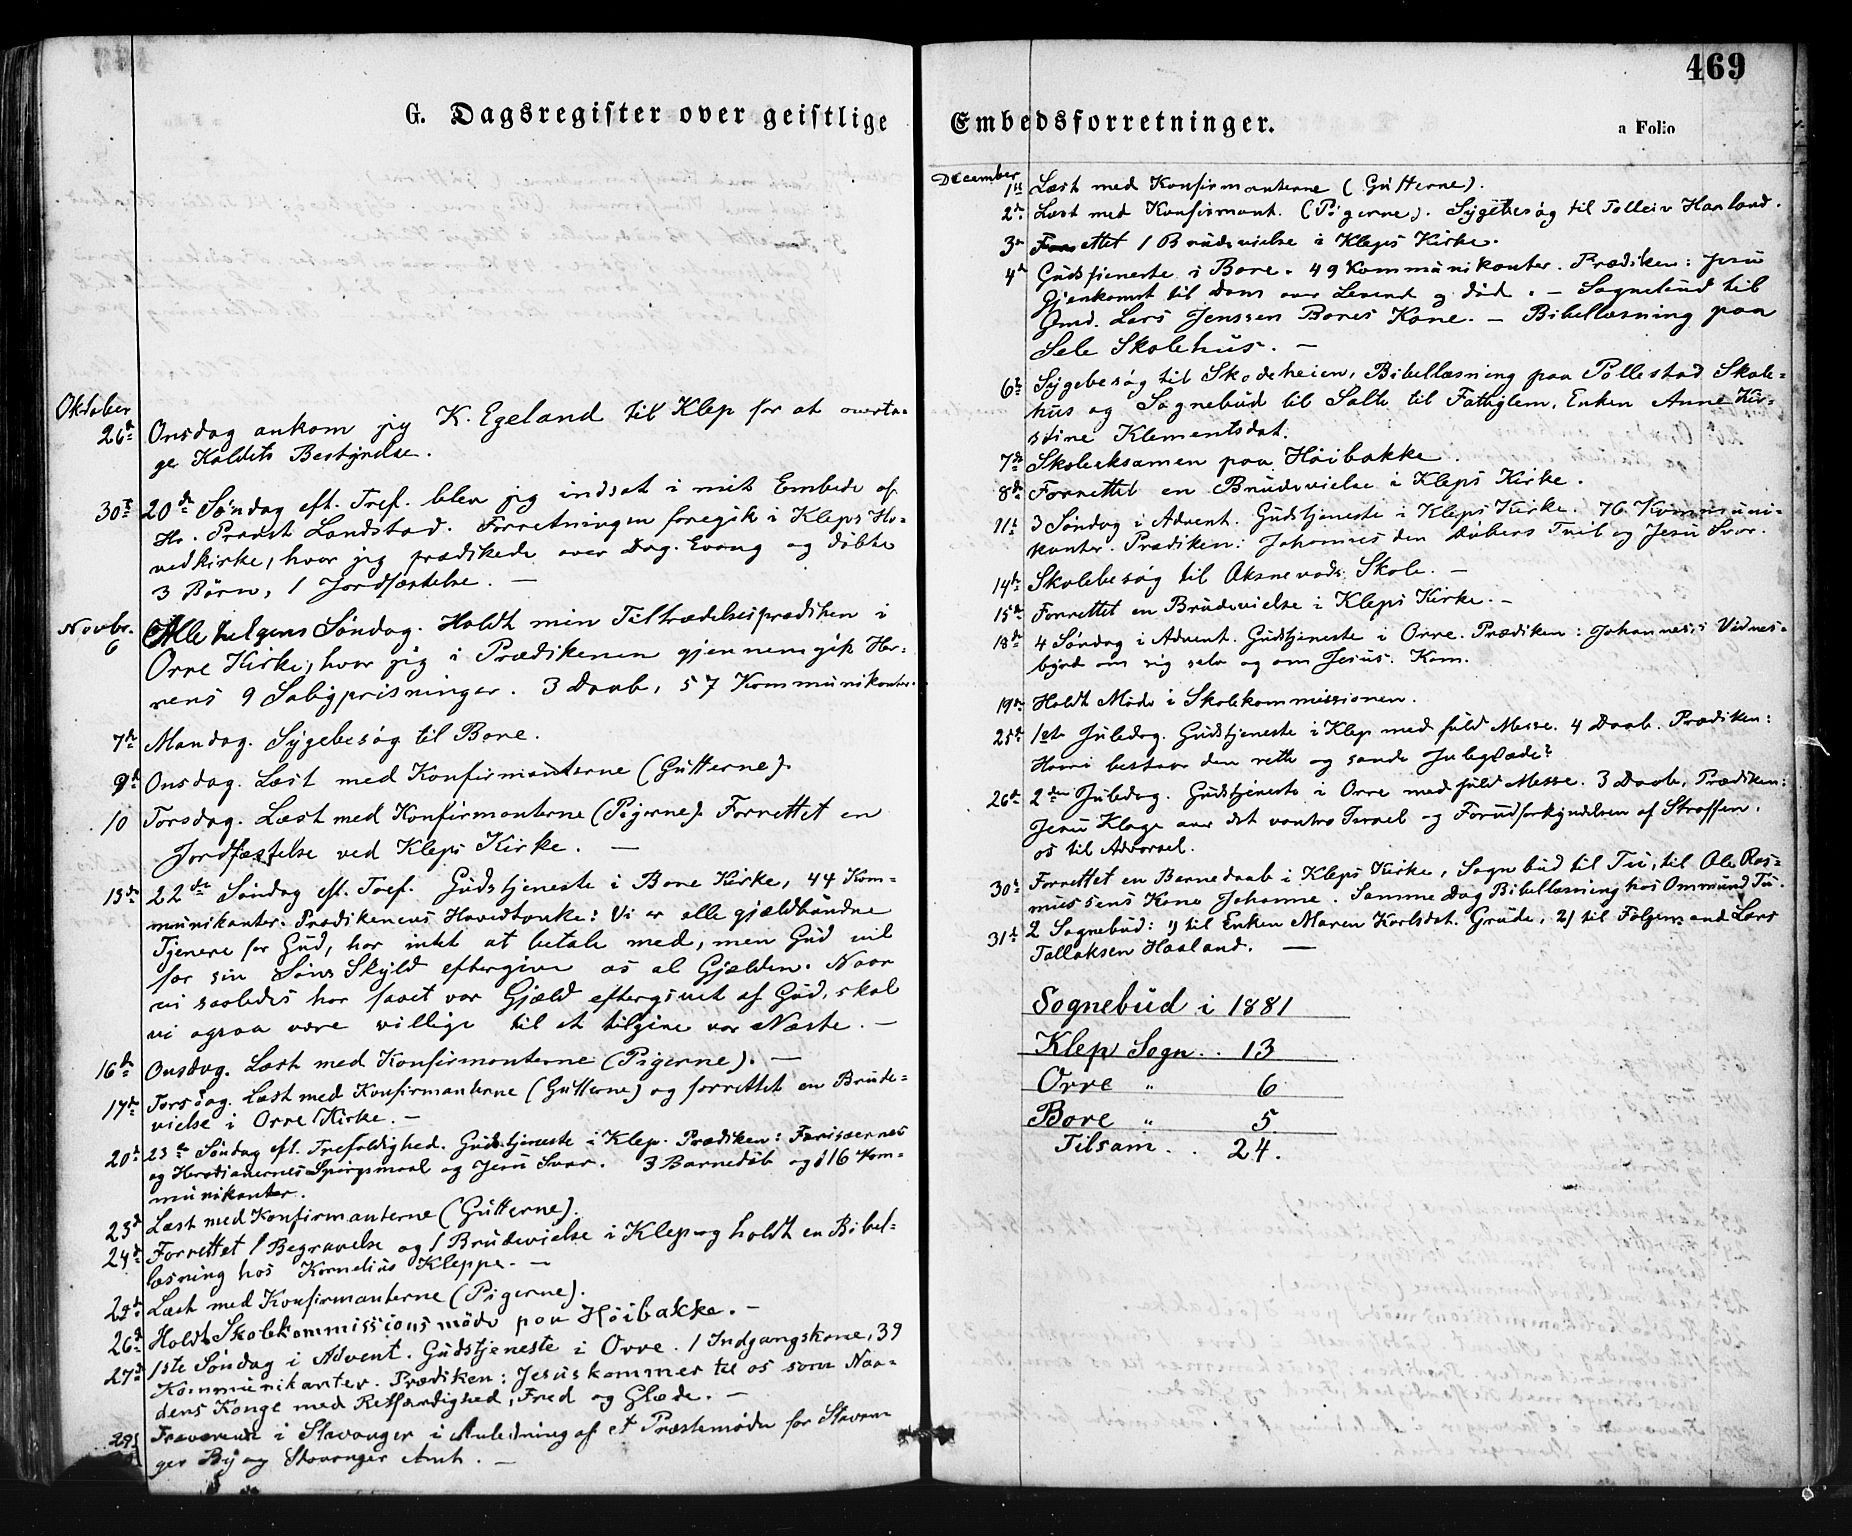 G. Dagsregister over geistlige
Oktober
26de Onsdag ankom jeg K. Egeland til Klep for at overta-
ge Kaldets Bestyrelse.
30te 20de Søndag eft. Tref. blev jeg indsat i mit Embede af
Hr. Provst Landstad. Forretningen foregik i Kleps Ho-
vedkirke, hvor jeg prædikede over Dag. Evang og døbte
3 Børn, 1 Jordfæstelse. —
Novbr.
6 Alle helgens Søndag. Holdt min Tiltrædelsesprædiken i
Orre Kirke, hvor jeg i Prædikenen gjennemgik Her-
rens 9 Saligprisninger. 3 Daab, 57 Kommunikanter.
7de Mandag. Sygebesøg til Bore.
9de Onsdag. Læst med Konfirmanterne (Gutterne).
10 Torsdag. Læst med Konfirmanterne (Pigerne). Forrettet en
Jordfæstelse ved Kleps Kirke. —
13de 22de Søndag eft. Tref. Gudstjeneste i Bore Kirke, 44 Kom-
munikanter. Prædikenens Hovedtanke: Vi er alle gjældbundne
Tjenere for Gud, har intet at betale med, men Gud vil
for sin Søns Skyld eftergive os al Gjælden. Naar
vi saaledes har faaet vor Gjæld eftergivet af Gud, skal
vi ogsaa være villige til at tilgive vor Næste. —
16de Onsdag. Læst med Konfirmanterne (Pigerne). —
17de Torsdag. Læst med Konfirmanterne (Gutterne) og forrettet en Brude-
vielse i Orre Kirke. —
20de 23de Søndag eft. Trefoldighed. Gudstjeneste i Klep. Prædiken: Farisæernes
og Herodianernes Spørgsmaal og Jesu Svar. 3 Barnedåb og 116 Kom-
munikanter.
23de Læst med Konfirmanterne (Gutterne).
24de Forrettet 1 Begravelse og 1 Brudevielse i Klep og holdt en Bibel-
læsning hos Kornelius Kleppe. —
Læst med Konfirmanterne (Pigerne).
26de Holdt Skolekommissionsmøde paa Høibakke. —
27de 1ste Søndag i Advent. Gudstjeneste i Orre. 1 Indgangskone, 39
Kommunikanter. Prædiken: Jesus kommer til os som Naa-
dens Konge med Retfærdighed, Fred og Glæde. —
29 Fraværende i Stavanger i Anledning af et Præstemøde for Stavan-
ger By og Stavanger Amt. —
469
Embedsforretninger.
a Folio
December
1ste Læst med Konfirmanterne (Gutterne).
2de Læst med Konfirmant. (Pigerne). Sygebesøg til Tolleiv Haaland.
3de Forrettet 1 Brudevielse i Kleps Kirke.
4de Gudstjeneste i Bore. 49 Kommunikanter. Prædiken: Jesu
Gjenkomst til Dom over Levende og døde. — Sognebud til
Gmd. Lars Jenssen Bores Kone. — Bibellæsning paa
Sele Skolehus. —
6te Sygebesøg til Skodeheien, Bibellæsning paa Pollestad Skole-
hus og Sognebud til Salte til Fattiglem, Enken Anne Kir-
stine Klementsdat.
7de Skoleeksamen paa Høibakke.
8de Forrettet en Brudevielse i Kleps Kirke.
11te 3 Søndag i Advent. Gudstjeneste i Kleps Kirke. 76 Kommuni-
kanter. Prædiken: Johannes den Døbers Tvil og Jesu Svar.
14de Skolebesøg til Aksnevads Skole. —
15de Forrettet en Brudevielse i Kleps Kirke. —
18de 4 Søndag i Advent. Gudstjeneste i Orre. Prædiken: Johannes's Vidnes-
byrd om sig selv og om Jesus. Kom.
19de Holdt Møde i Skolekommissionen.
25de 1ste Juledag. Gudstjeneste i Klep med fuld Messe. 4 Daab. Prædiken:
Hvori bestaar den rette og sande Juleglæde?
26de 2den Juledag. Gudstjeneste i Orre med fuld Messe. 3 Daab, Prædiken:
Jesu Klage over det vantro Israel og Forudforkyndelsen af Straffen,
os til Advarsel.
30te Forrettet en Barnedaab i Kleps Kirke, Sognebud til Tu, til Ole Ras-
mussens Kone Johanne. Samme Dag Bibellæsning hos Ommund Tu.
31te 2 Sognebud: 1) til Enken Maren Karlsdat. Grude, 2) til Følgemand Lars
Tallaksen Haaland. —
Sognebud i 1881
Klep Sogn.. 13
Orre " 6
Bore " 5
Tilsam. . 24.